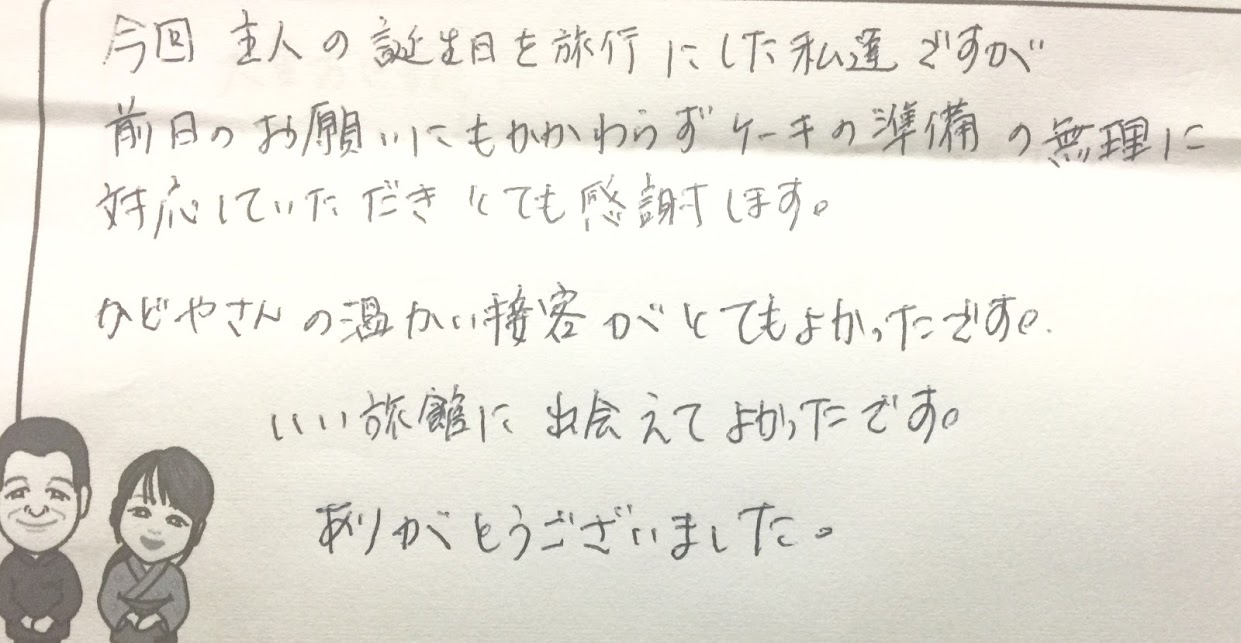 今回 主人の誕生日を旅行にした私達ですが
前日のお願いにもかかわらずケーキの準備の無理に
対応していただきとても感謝します。
かどやさんの温かい接客がとてもよかったです。
いい旅館に出会えてよかったです。
ありがとうございました。